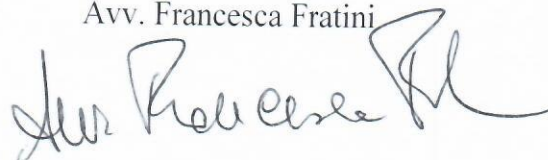 Avv. Francesca Fratini
Avv. Francesca